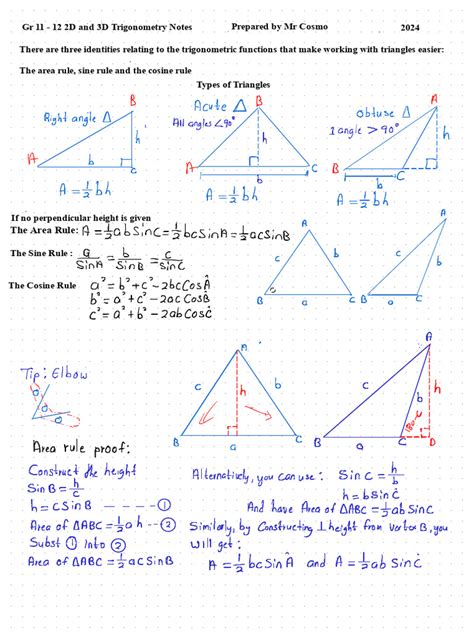 Gr 11 - 12 2D and 3D Trigonometry Notes Prepared by Mr Cosmo 2024
There are three identities relating to the trigonometric functions that make working with triangles easier:
The area rule, sine rule and the cosine rule
Types of Triangles
Right angle Δ
A B C b h
A = ½bh
Acute Δ
All angles <90°
A B C b h
A = ½bh
obtuse Δ
1 angle > 90°
A B C b h
A = ½bh
If no perpendicular height is given
The Area Rule: A = ½abSinC = ½bcSinA = ½acSinB
The Sine Rule : a/SinA = b/SinB = c/SinC
The Cosine Rule a² = b² + c² - 2bcCosÂ
b² = a² + c² - 2acCosB̂
c² = a² + b² - 2abCosĈ
A B C c b a
A B C c b a
Tip: Elbow
A B C c b a h
A B C D c b a h 180-C
Area rule proof:
Construct the height
SinB = h/c
h = cSinB ---- ①
Area of ΔABC = ½ah -- ②
Subst ① into ②
Area of ΔABC = ½acSinB
Alternatively, you can use: SinC = h/b
h = bSinC
And have Area of ΔABC = ½abSinC
Similarly, by Constructing ⊥height from vertex B, you
will get:
A = ½bcSinÂ and A = ½abSinĈ